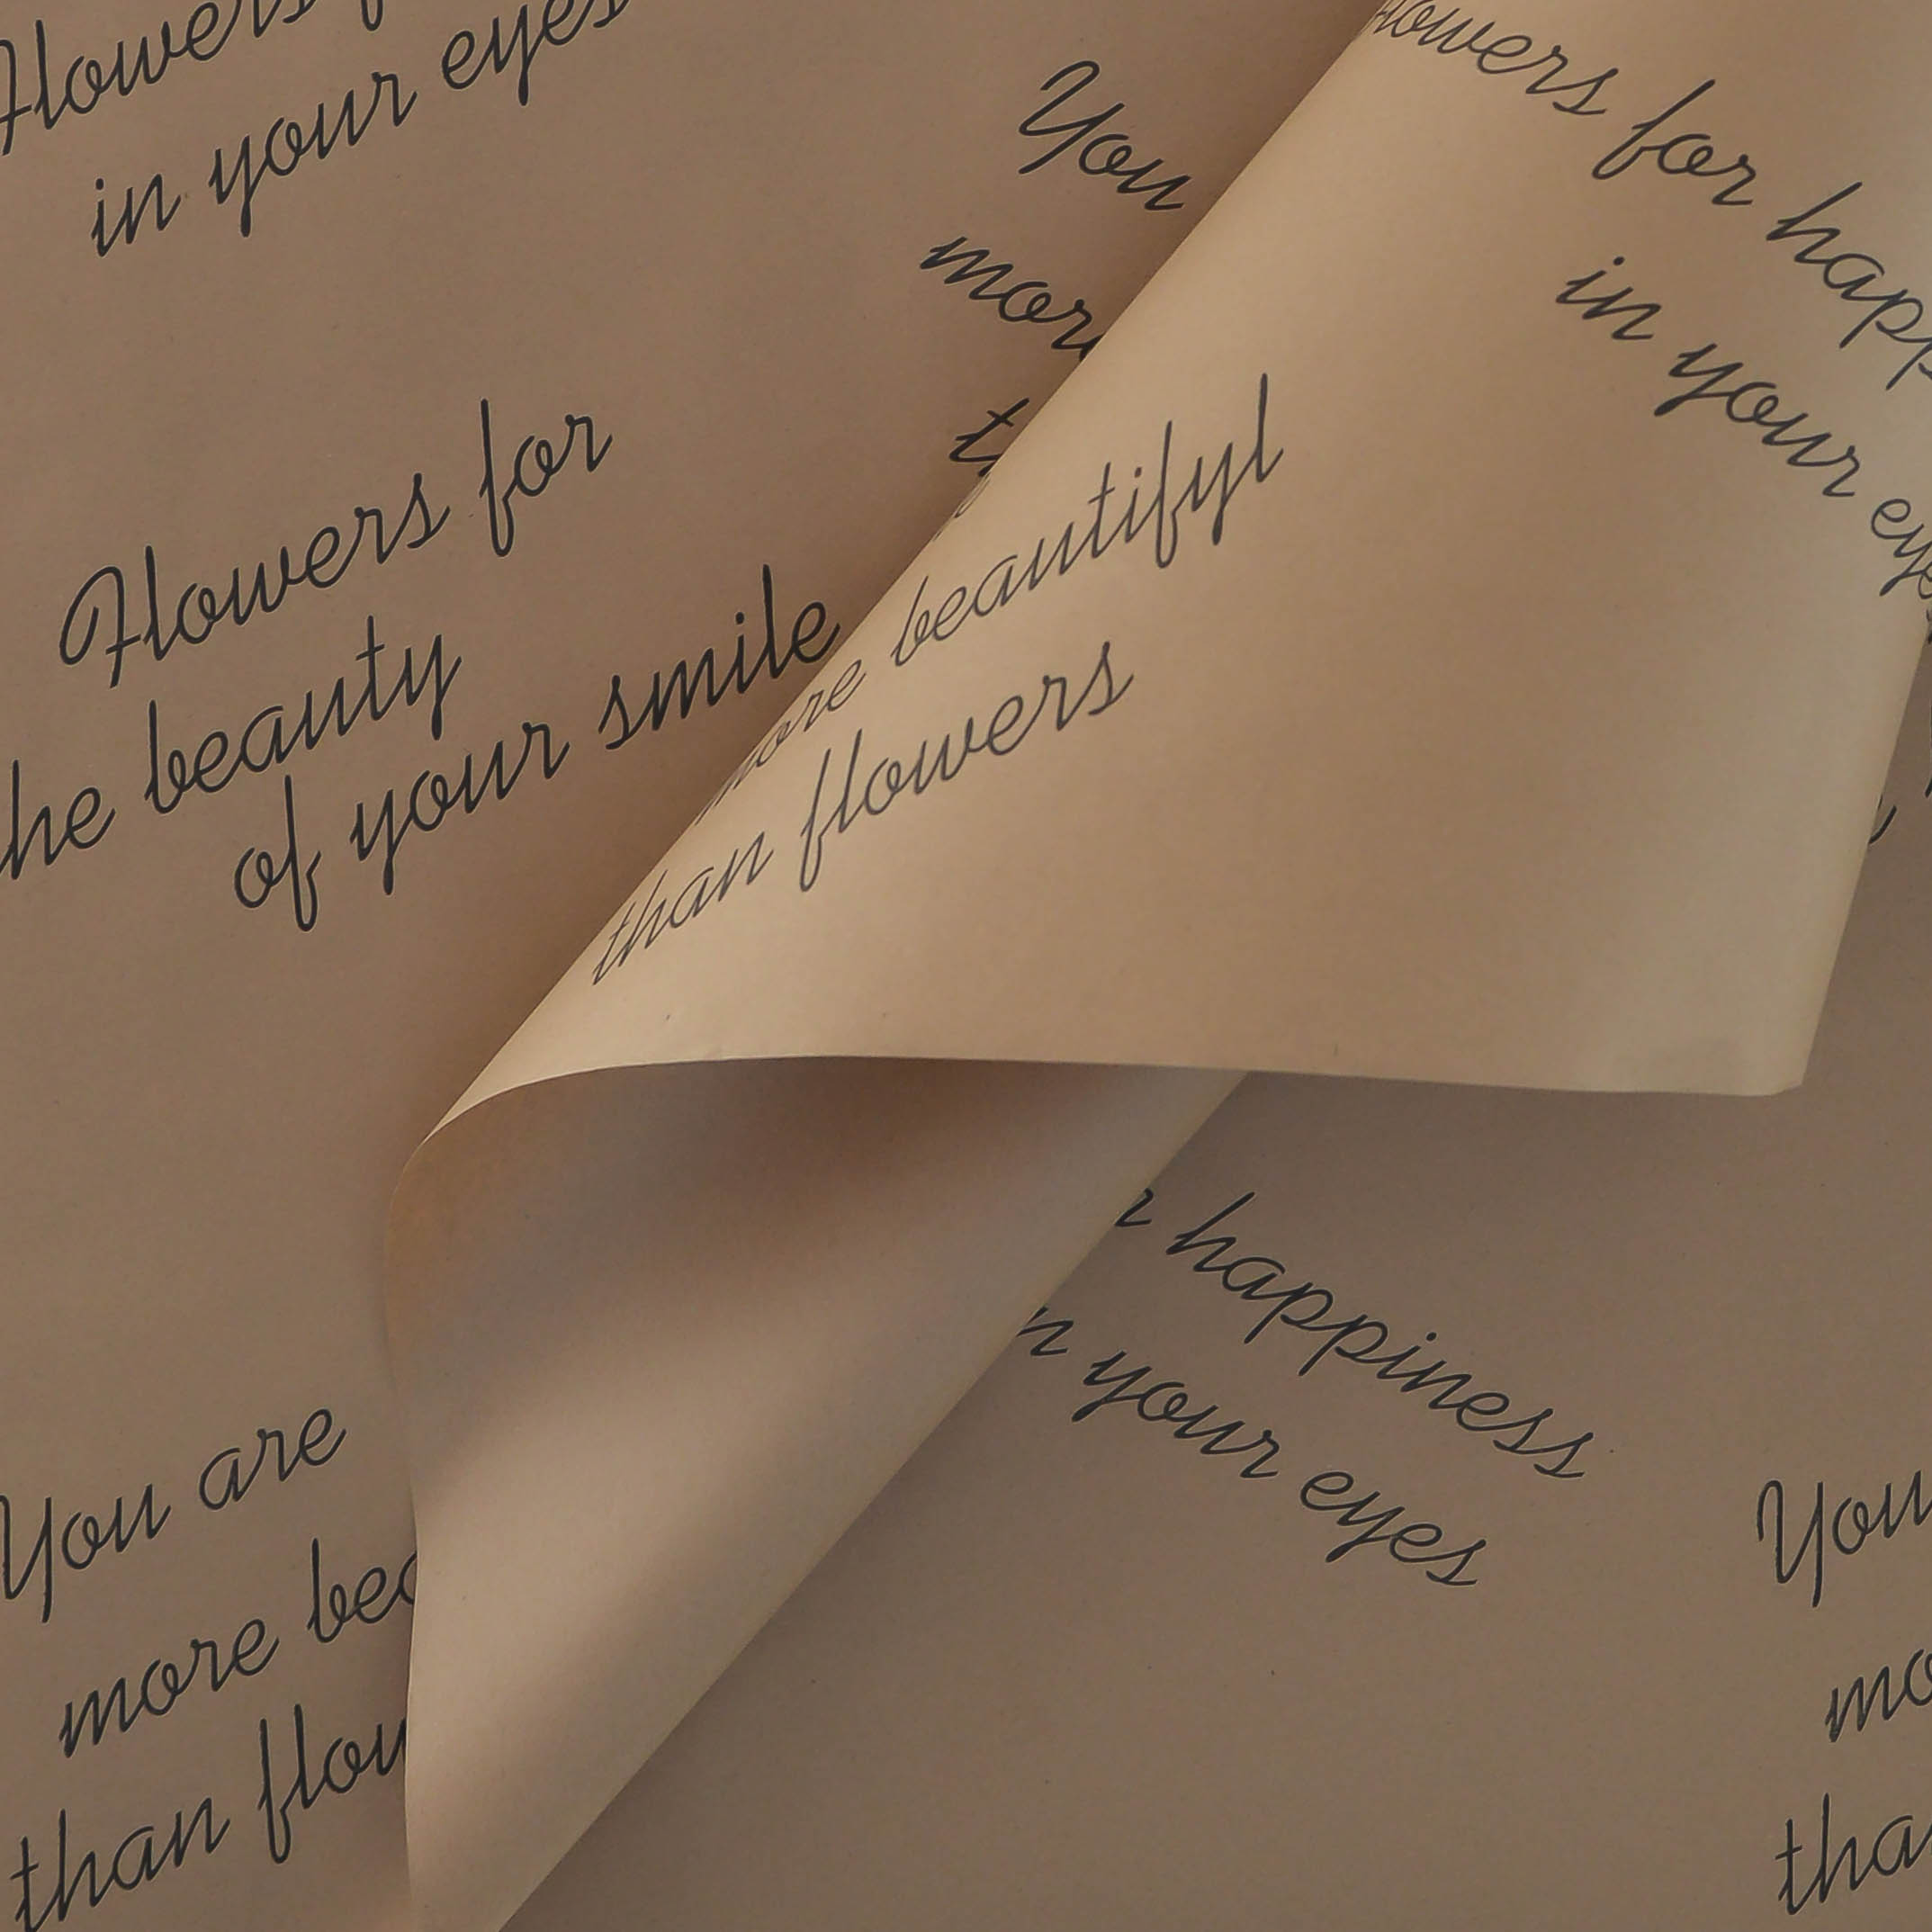 Flowers
in your eyes
You
more
Flowers for
the beauty
of your smile
flowers for
in your
more beautifyl
than flowers
happiness
your eyes
You are
more
than
You